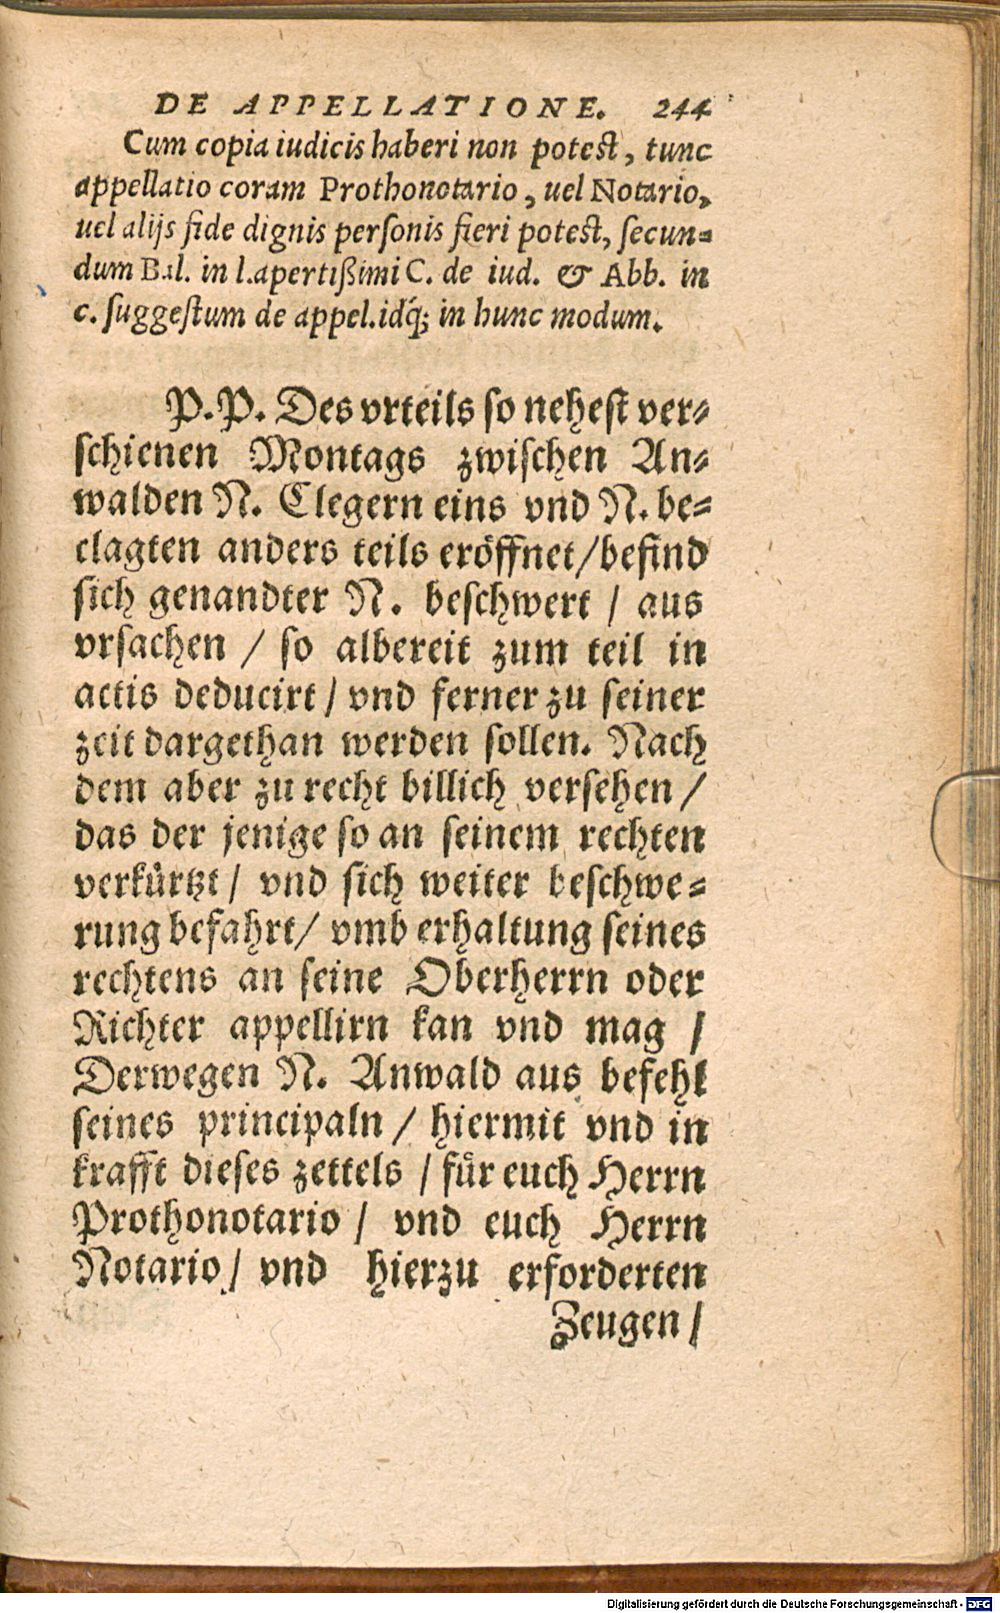 DE APPELLATIONE. 244
Cum copia iudicis haberi non potest, tunc
appellatio coram Prothonotario, uel Notario,
uel alijs fide dignis perſonis fieri potest, ſecun-
dum Bal. in l. apertißimi C. de iud. & Abb. in
c. ſuggeſtum de appel. idq́; in hunc modum.
P.P. Des vrteils ſo neheſt ver-
ſchienen Montags zwiſchen An-
walden N. Clegern eins vnd N. be-
clagten anders teils eröffnet/ befind
ſich genandter N. beſchwert / aus
vrſachen / ſo albereit zum teil in
actis deducirt / vnd ferner zu ſeiner
zeit dargethan werden ſollen. Nach
dem aber zu recht billich verſehen /
das der jenige ſo an ſeinem rechten
verkürtzt / vnd ſich weiter beſchwe-
rung befahrt/ vmb erhaltung ſeines
rechtens an ſeine Oberherrn oder
Richter appellirn kan vnd mag /
Derwegen N. Anwald aus befehl
ſeines principaln / hiermit vnd in
krafft dieſes zettels / für euch Herrn
Prothonotario / vnd euch Herrn
Notario / vnd hierzu erforderten
Zeugen /
Digitalisierung gefördert durch die Deutsche Forschungsgemeinschaft - DFG